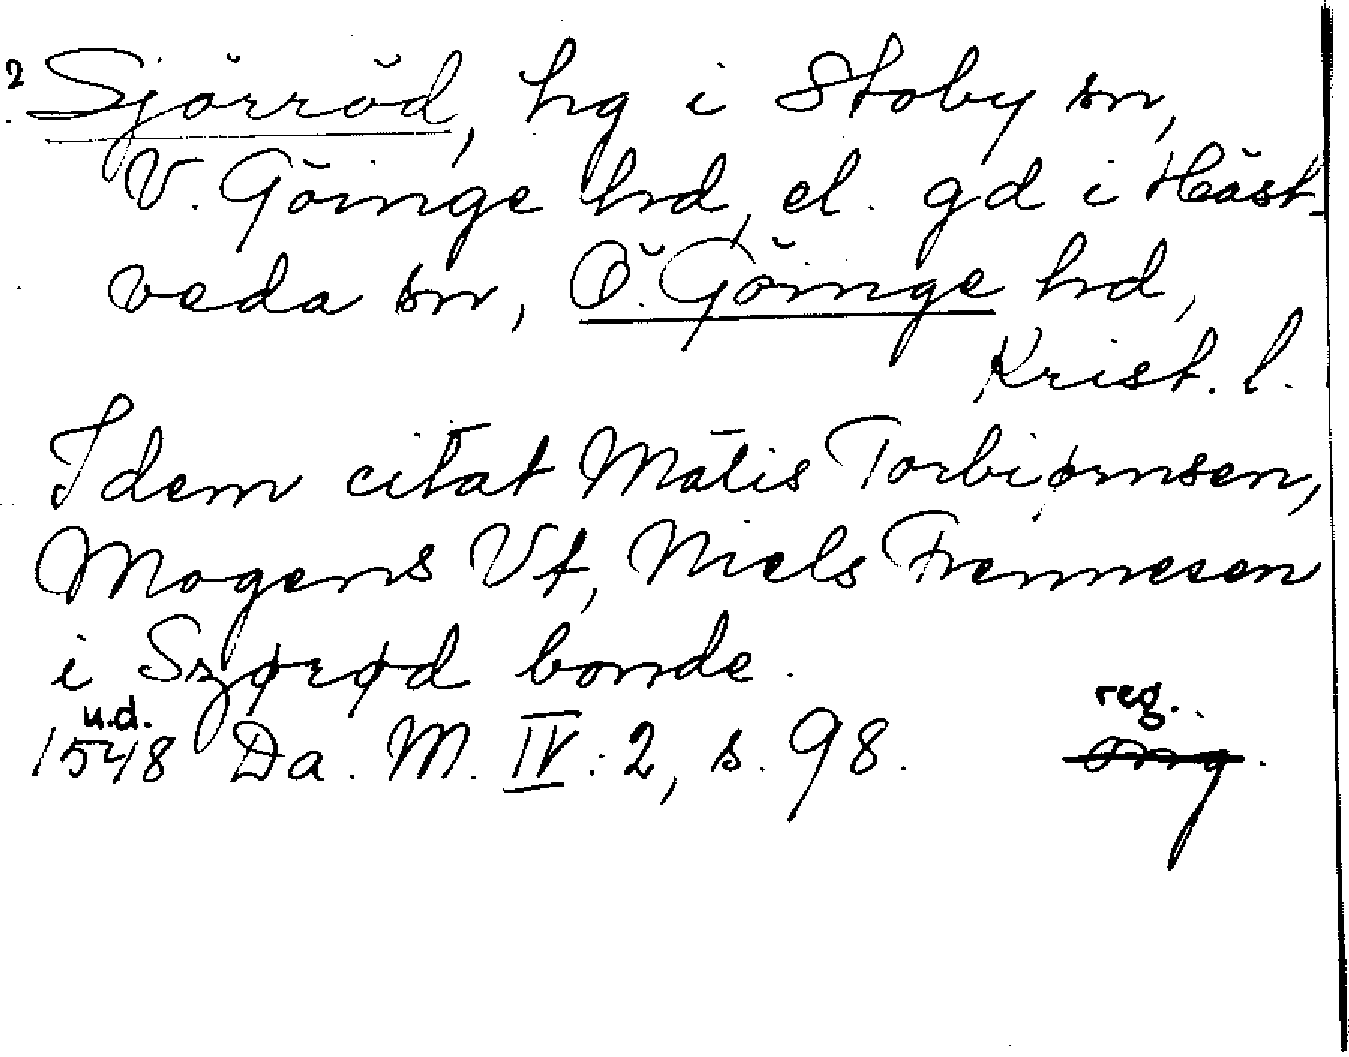 2 Sjörröd, hg i Stoby sn,
V. Göinge hrd, el. gd i Häst-
veda sn, Ö. Göinge hrd,
Krist. l.
Idem citat Matis Torbiørnsen,
Mogens Vf, Niels Frennesen
i Szørød bonde.
u.d. reg.
1548 Da. M. IV:2, s. 98. Orig.